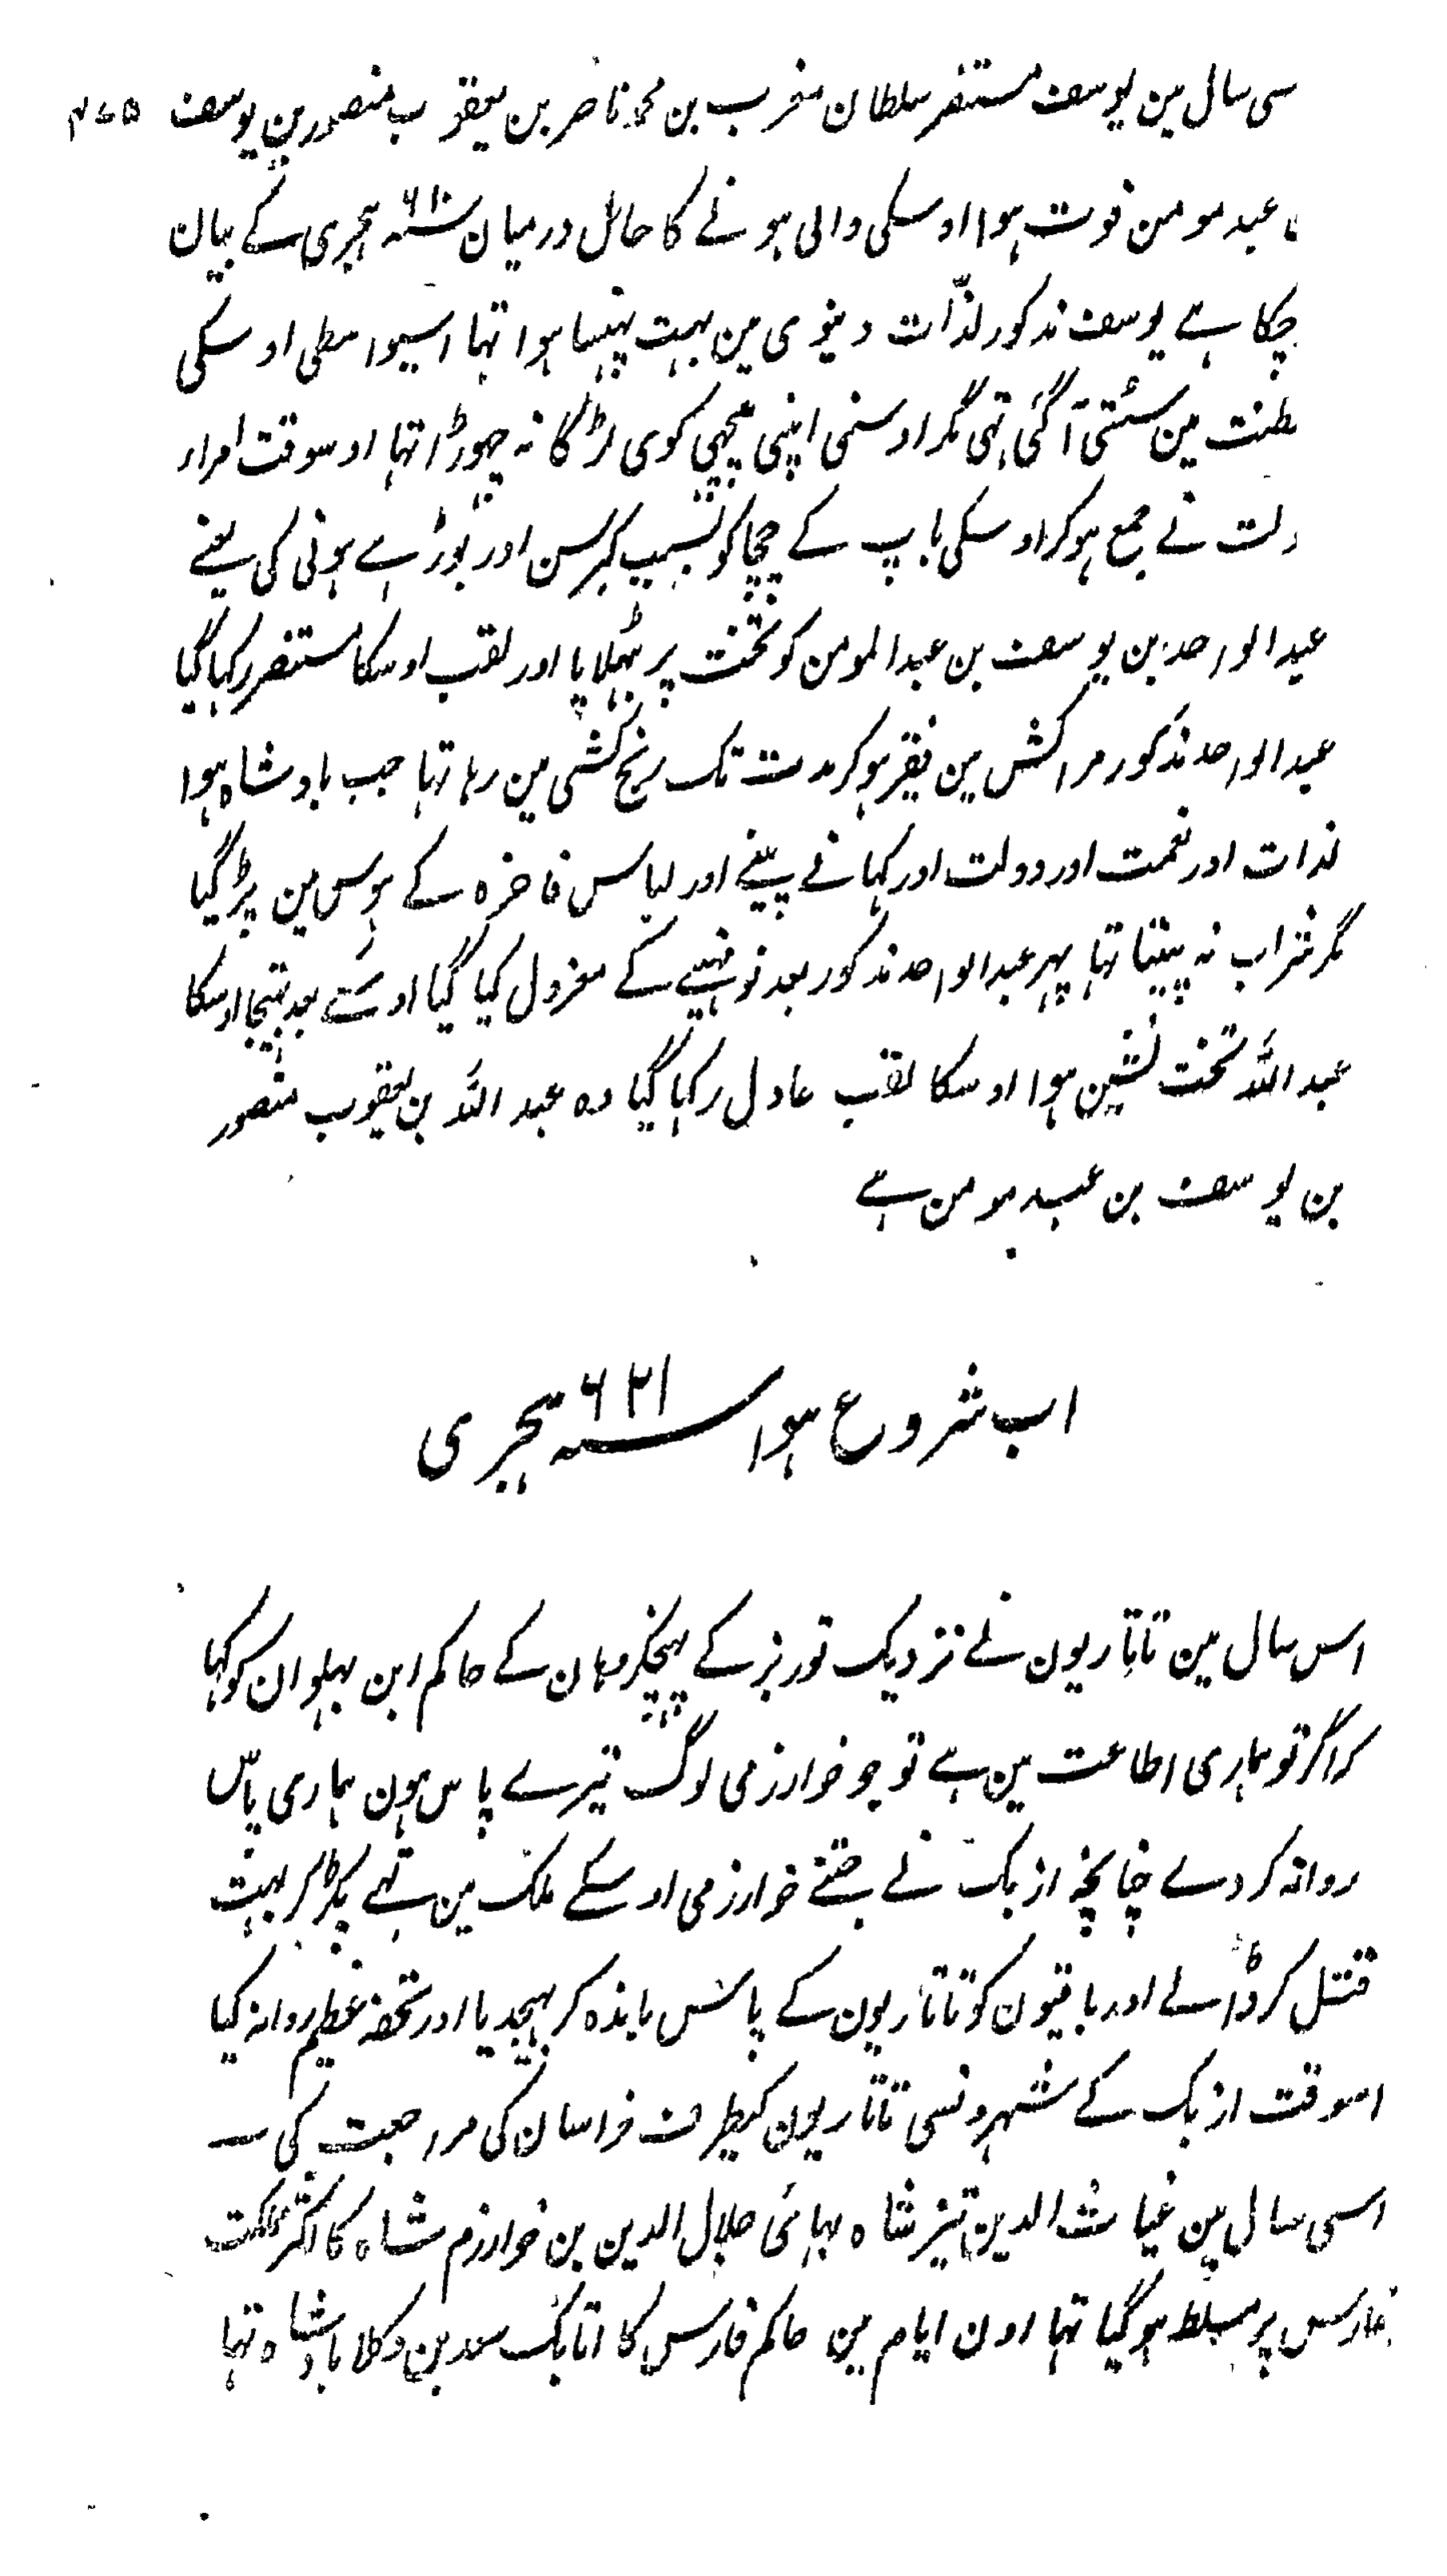 سی سال مین یوسف مستنصر سلطان مغرب بن محمد ناصر بن یعقوب منصور بن یوسف ۴۷۵
عبد مومن فوت ہوا اوسکی والی ہونے کا حال درمیان سنہ ۶۱۰ ہجری کے بیان
چکا ہے یوسف مذکور لذّات دنیوی مین بہت پہنسا ہوا تہا اسیواسطی اوسکی
لطنت مین سُستی آگئی تہی مگر اوسنی اپنی پیچہی کوی لڑکا نہ چہوڑا تہا اوسوقت امرار
ولت نے جمع ہو کر اوسکی باپ کے چچا کو بسبب کبر سن اور بوڑہے ہونی کی یعنے
عبد الواحد بن یوسف بن عبد المومن کو تخت پر بٹہلایا اور لقب اوسکا مستنصر رکہا گیا
عبد الواحد مذکور مراکش مین فقیر ہو کر مدت تک رنج کشی مین رہا تہا جب بادشاہ ہوا
لذات اور نعمت اور دولت اور کہانے پینے اور لباس فاخرہ کے ہوس مین پڑ گیا
مگر شراب نہ پیتا تہا پہر عبد الواحد مذکور بعد نو مہینے کے معزول کیا گیا اوسکے بعد بہتیجا اوسکا
عبد اللہ تخت نشین ہوا اوسکا لقب عادل رکہا گیا وہ عبد اللہ بن یعقوب منصور
بن یوسف بن عبد مومن ہے
اب شروع ہوا سنہ ۶۲۱ ہجری
اس سال مین تاتاریون نے نزدیک توریز کے پہنچکر وہان کے حاکم ابن پہلوان کو کہا
کہ اگر تو ہماری اطاعت مین ہے تو جو خوارزمی لوگ تیرے پاس ہون ہماری پاس
روانہ کر دے چنانچہ ازبک نے جتنے خوارزمی اوسکے ملک مین تہے پکڑ کر بہت
قتل کر ڈالے اور باقیون کو تاتاریون کے پاس باندہ کر بہیجدیا اور تحفہ عظیم روانہ کیا
اسوقت ازبک کے شہرونسی تاتاریون کیطرف خراسان کی مراجعت کی ۔
اسی سال مین غیاث الدین تیز شاہ بہائی جلال الدین بن خوارزم شاہ کا اکثر مملکت
فارس پر مسلط ہو گیا تہا اون ایام مین حاکم فارس کا اتابک سعد بن دکلا بادشاہ تہا